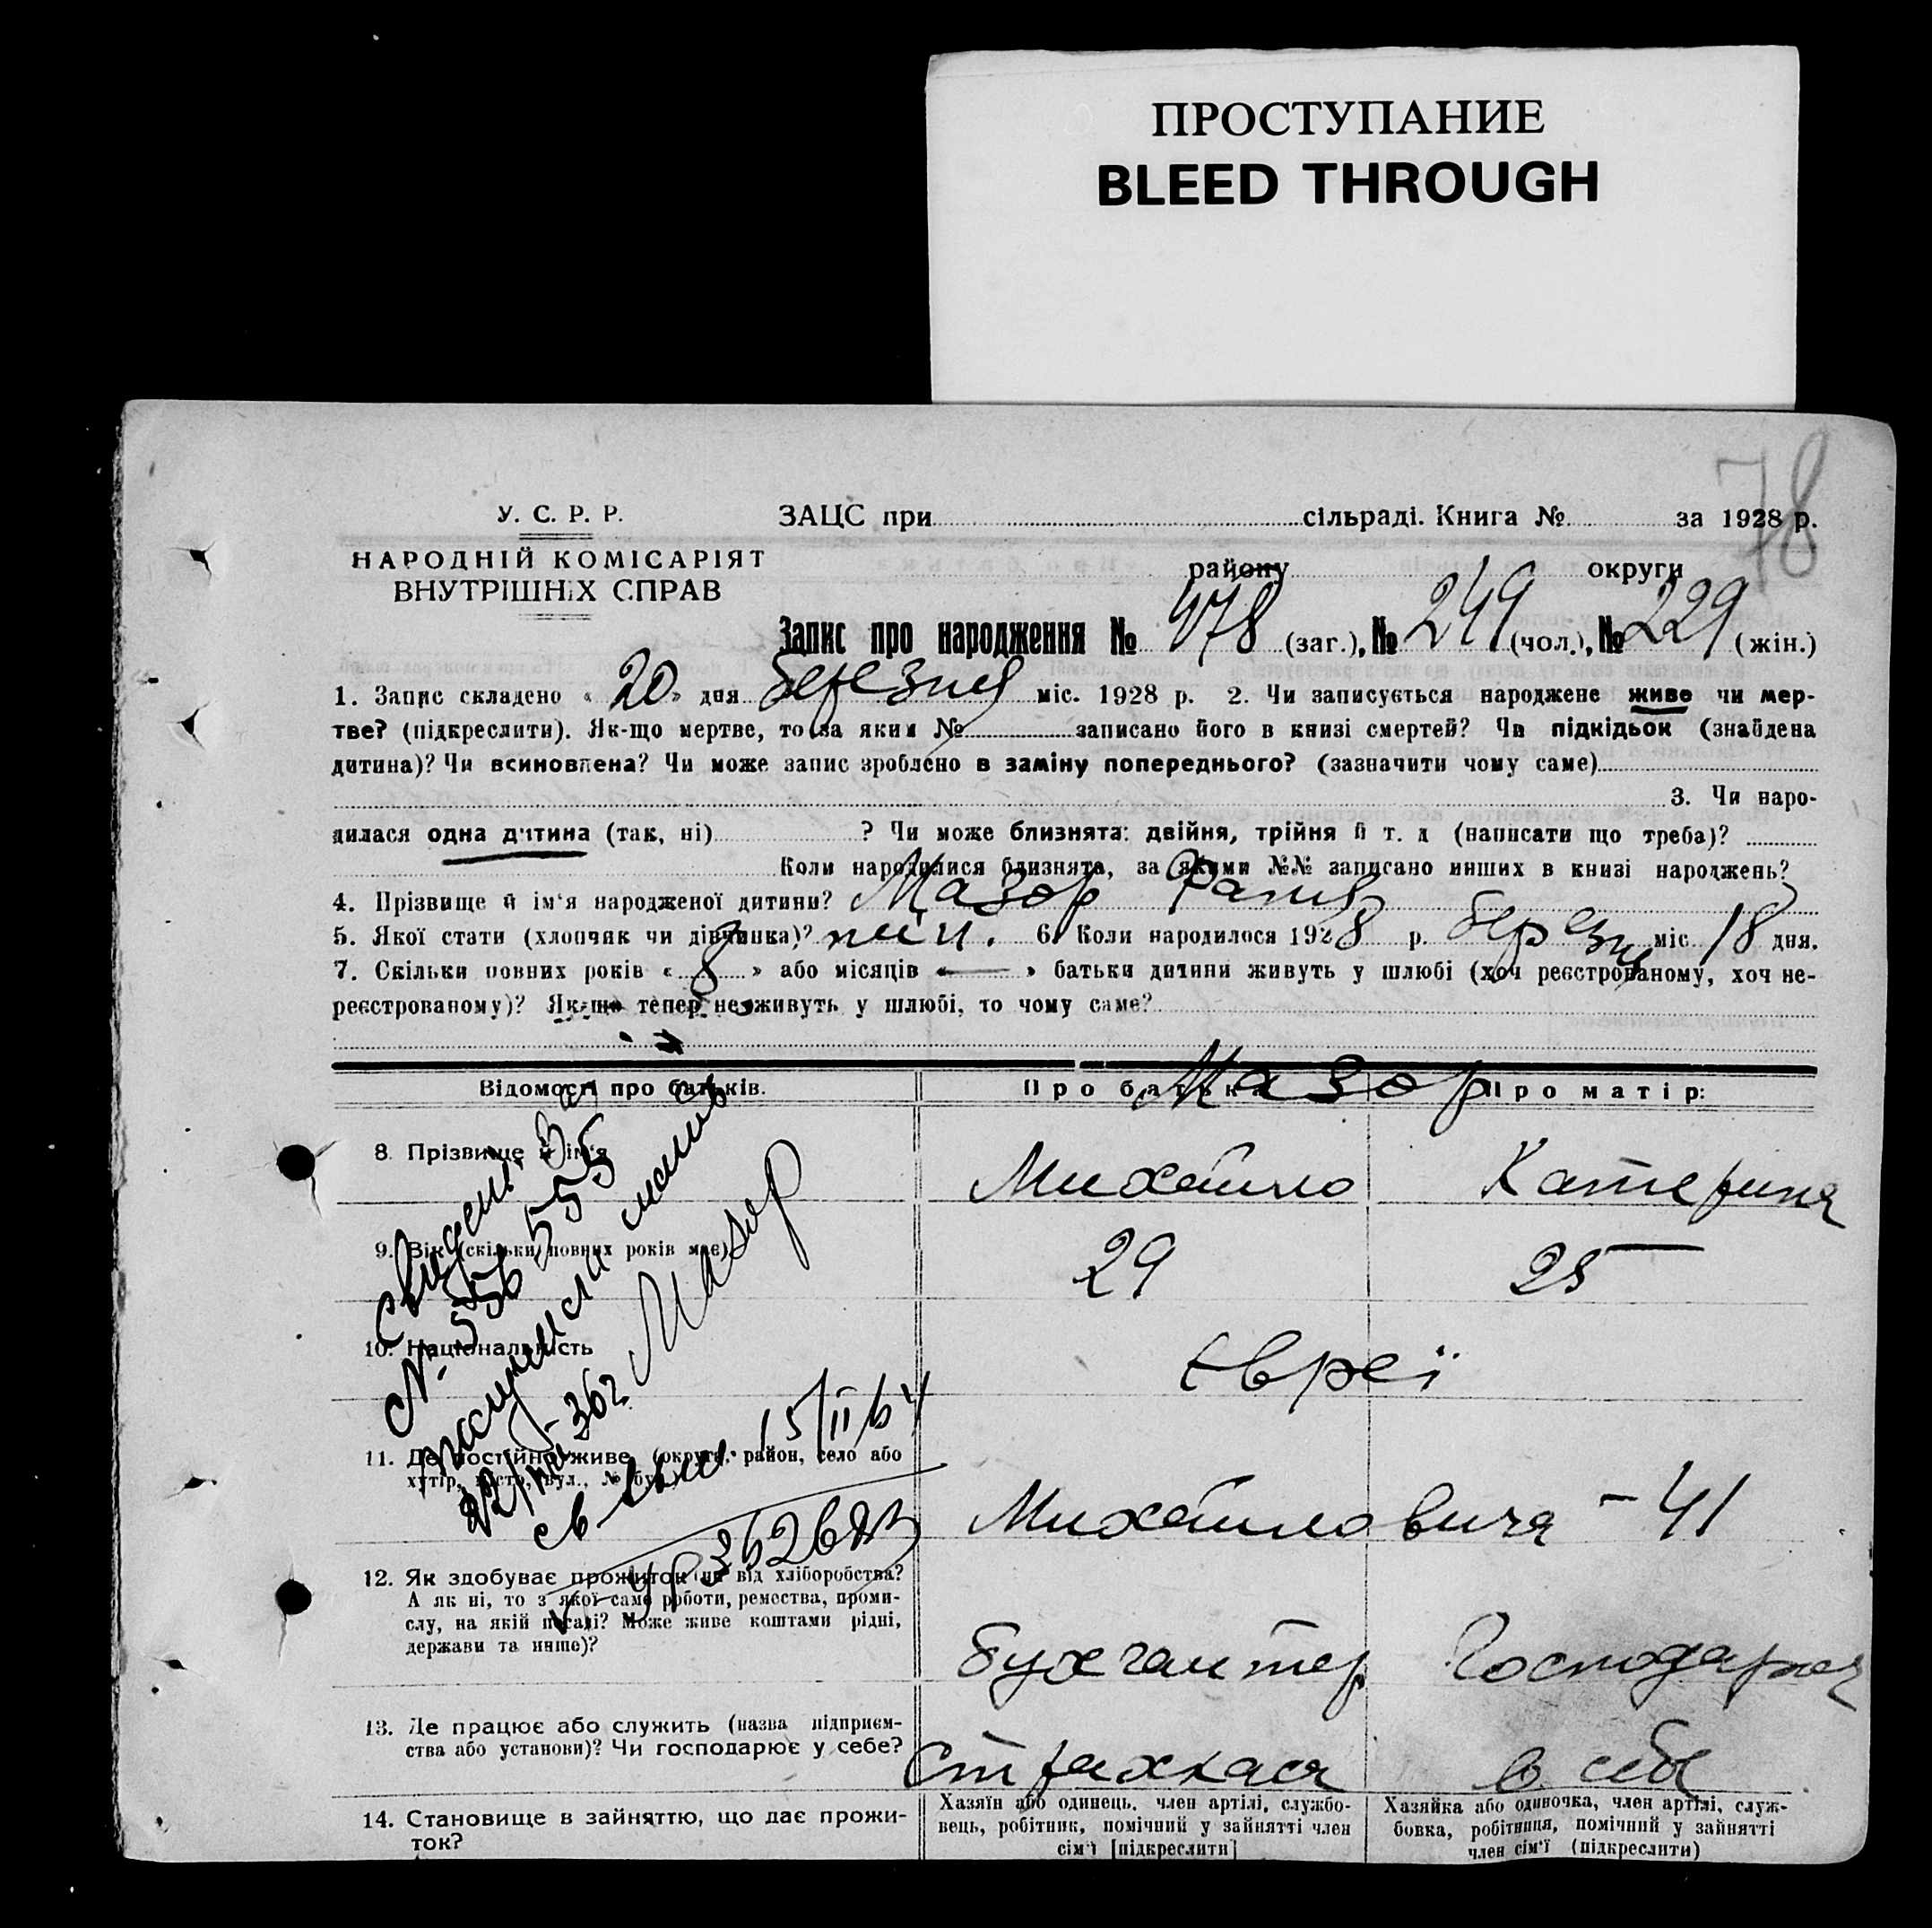 ПРОСТУПАНИЕ
BLEED THROUGH
78
У. С. Р. Р.
ЗАЦС при сільраді. Книга № за 1928 р.
НАРОДНІЙ КОМІСАРІЯТ
ВНУТРІШНІХ СПРАВ
району округи
Запис про народження № 478 (заг.), № 249 (чол.), № 229 (жін.)
1. Запис складено « 20 » дня березня міс. 1928 р. 2. Чи записується народжене живе чи мер-
тве? (підкреслити). Як-що мертве, то за яким № записано його в книзі смертей? Чи підкідьок (знайдена
дитина)? Чи всиновлена? Чи може запис зроблено в заміну попереднього? (зазначити чому саме)
3. Чи наро-
дилася одна дитина (так, ні) ? Чи може близнята: двійня, трійня й т. д (написати що треба)?
Коли народилися близнята, за якими №№ записано инших в книзі народжень?
4. Прізвище й ім'я народженої дитини? Мазор Фаня
5. Якої стати (хлопчяк чи дівчинка)? 6. Коли народилося 1928 р. березня міс. 18 дня.
7. Скільки повних років « 8 » або місяців « — » батьки дитини живуть у шлюбі (хоч реєстрованому, хоч не-
реєстрованому)? Як-що тепер не живуть у шлюбі, то чому саме?
Відомості про батьків. Про батька Про матір:
Мазор
8. Прізвище й ім'я Михайло Катерина
9. Вік (скільки повних років має) 29 25
10. Національність Євреї
11. Де постійно живе (округа, район, село або
хутір, місто, вул., № буд.) Михайловича – 41
12. Як здобуває прожиток чи від хліборобства?
А як ні, то з якої саме роботи, ремества, проми-
слу, на якій посаді? Може живе коштами рідні,
держави та инше)?
Бухгалтер Господарка
13. Де працює або служить (назва підприєм-
ства або установи)? Чи господарює у себе?
Страхкаса в себе
14. Становище в зайняттю, що дає прожи-
ток?
Хазяїн або одинець, член артілі, службо-
вець, робітник, помічний у зайнятті член
сім'ї [підкреслити]
Хазяйка або одиночка, член артілі, служ-
бовка, робітниця, помічний у зайнятті
член сім'ї (підкреслити)
№ 556555
Мазор
15/II/64